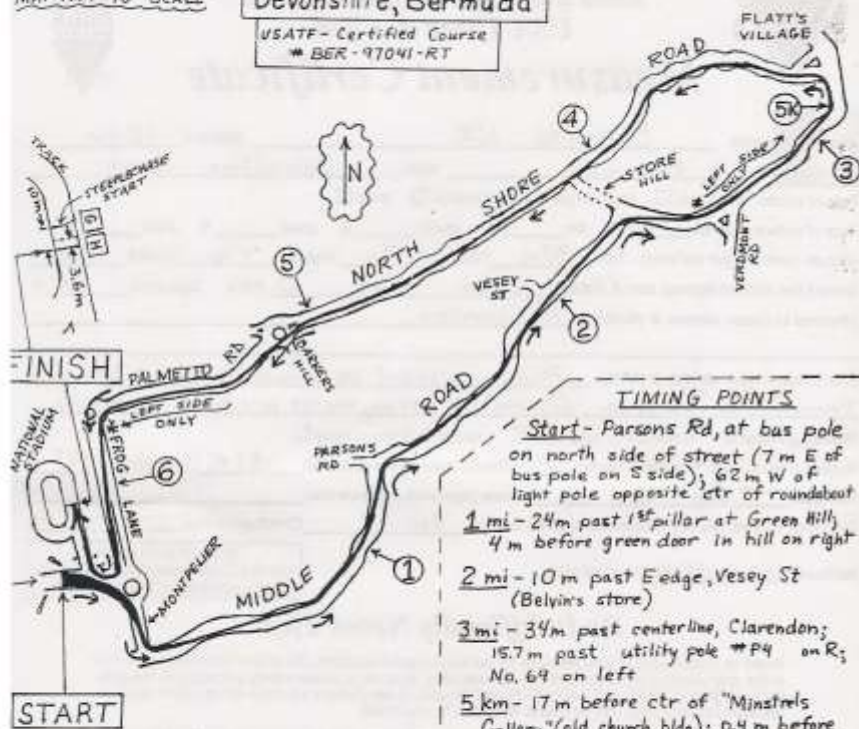 Devonshire, Bermuda
USATF - Certified Course
# BER-97041-RT
FLATT'S
VILLAGE
ROAD
5K
4
3
STORE
HILL
* LEFT
SIDE
ONLY
VERDMONT
RD
N
SHORE
NORTH
5
TRACK
STEEPLECHASE
START
10mm
G H
3.6m
VESEY
ST
2
BARKERS
HILL
FINISH
PALMETTO
RD
* LEFT SIDE
ONLY
NATIONAL
STADIUM
FROG
LANE
6
ROAD
PARSONS
RD
1
MIDDLE
MONTPELIER
START
TIMING POINTS
Start - Parsons Rd, at bus pole
on north side of street (7m E of
bus pole on S side); 62m W of
light pole opposite ctr of roundabout
1 mi - 24m past 1st pillar at Green Hill;
4 m before green door in hill on right
2 mi - 10m past E edge, Vesey St
(Belvin's store)
3 mi - 34m past centerline, Clarendon;
15.7m past utility pole #P4 on R;
No. 69 on left
5 km - 17m before ctr of "Minstrels
(old church bldg); 0.4 m before